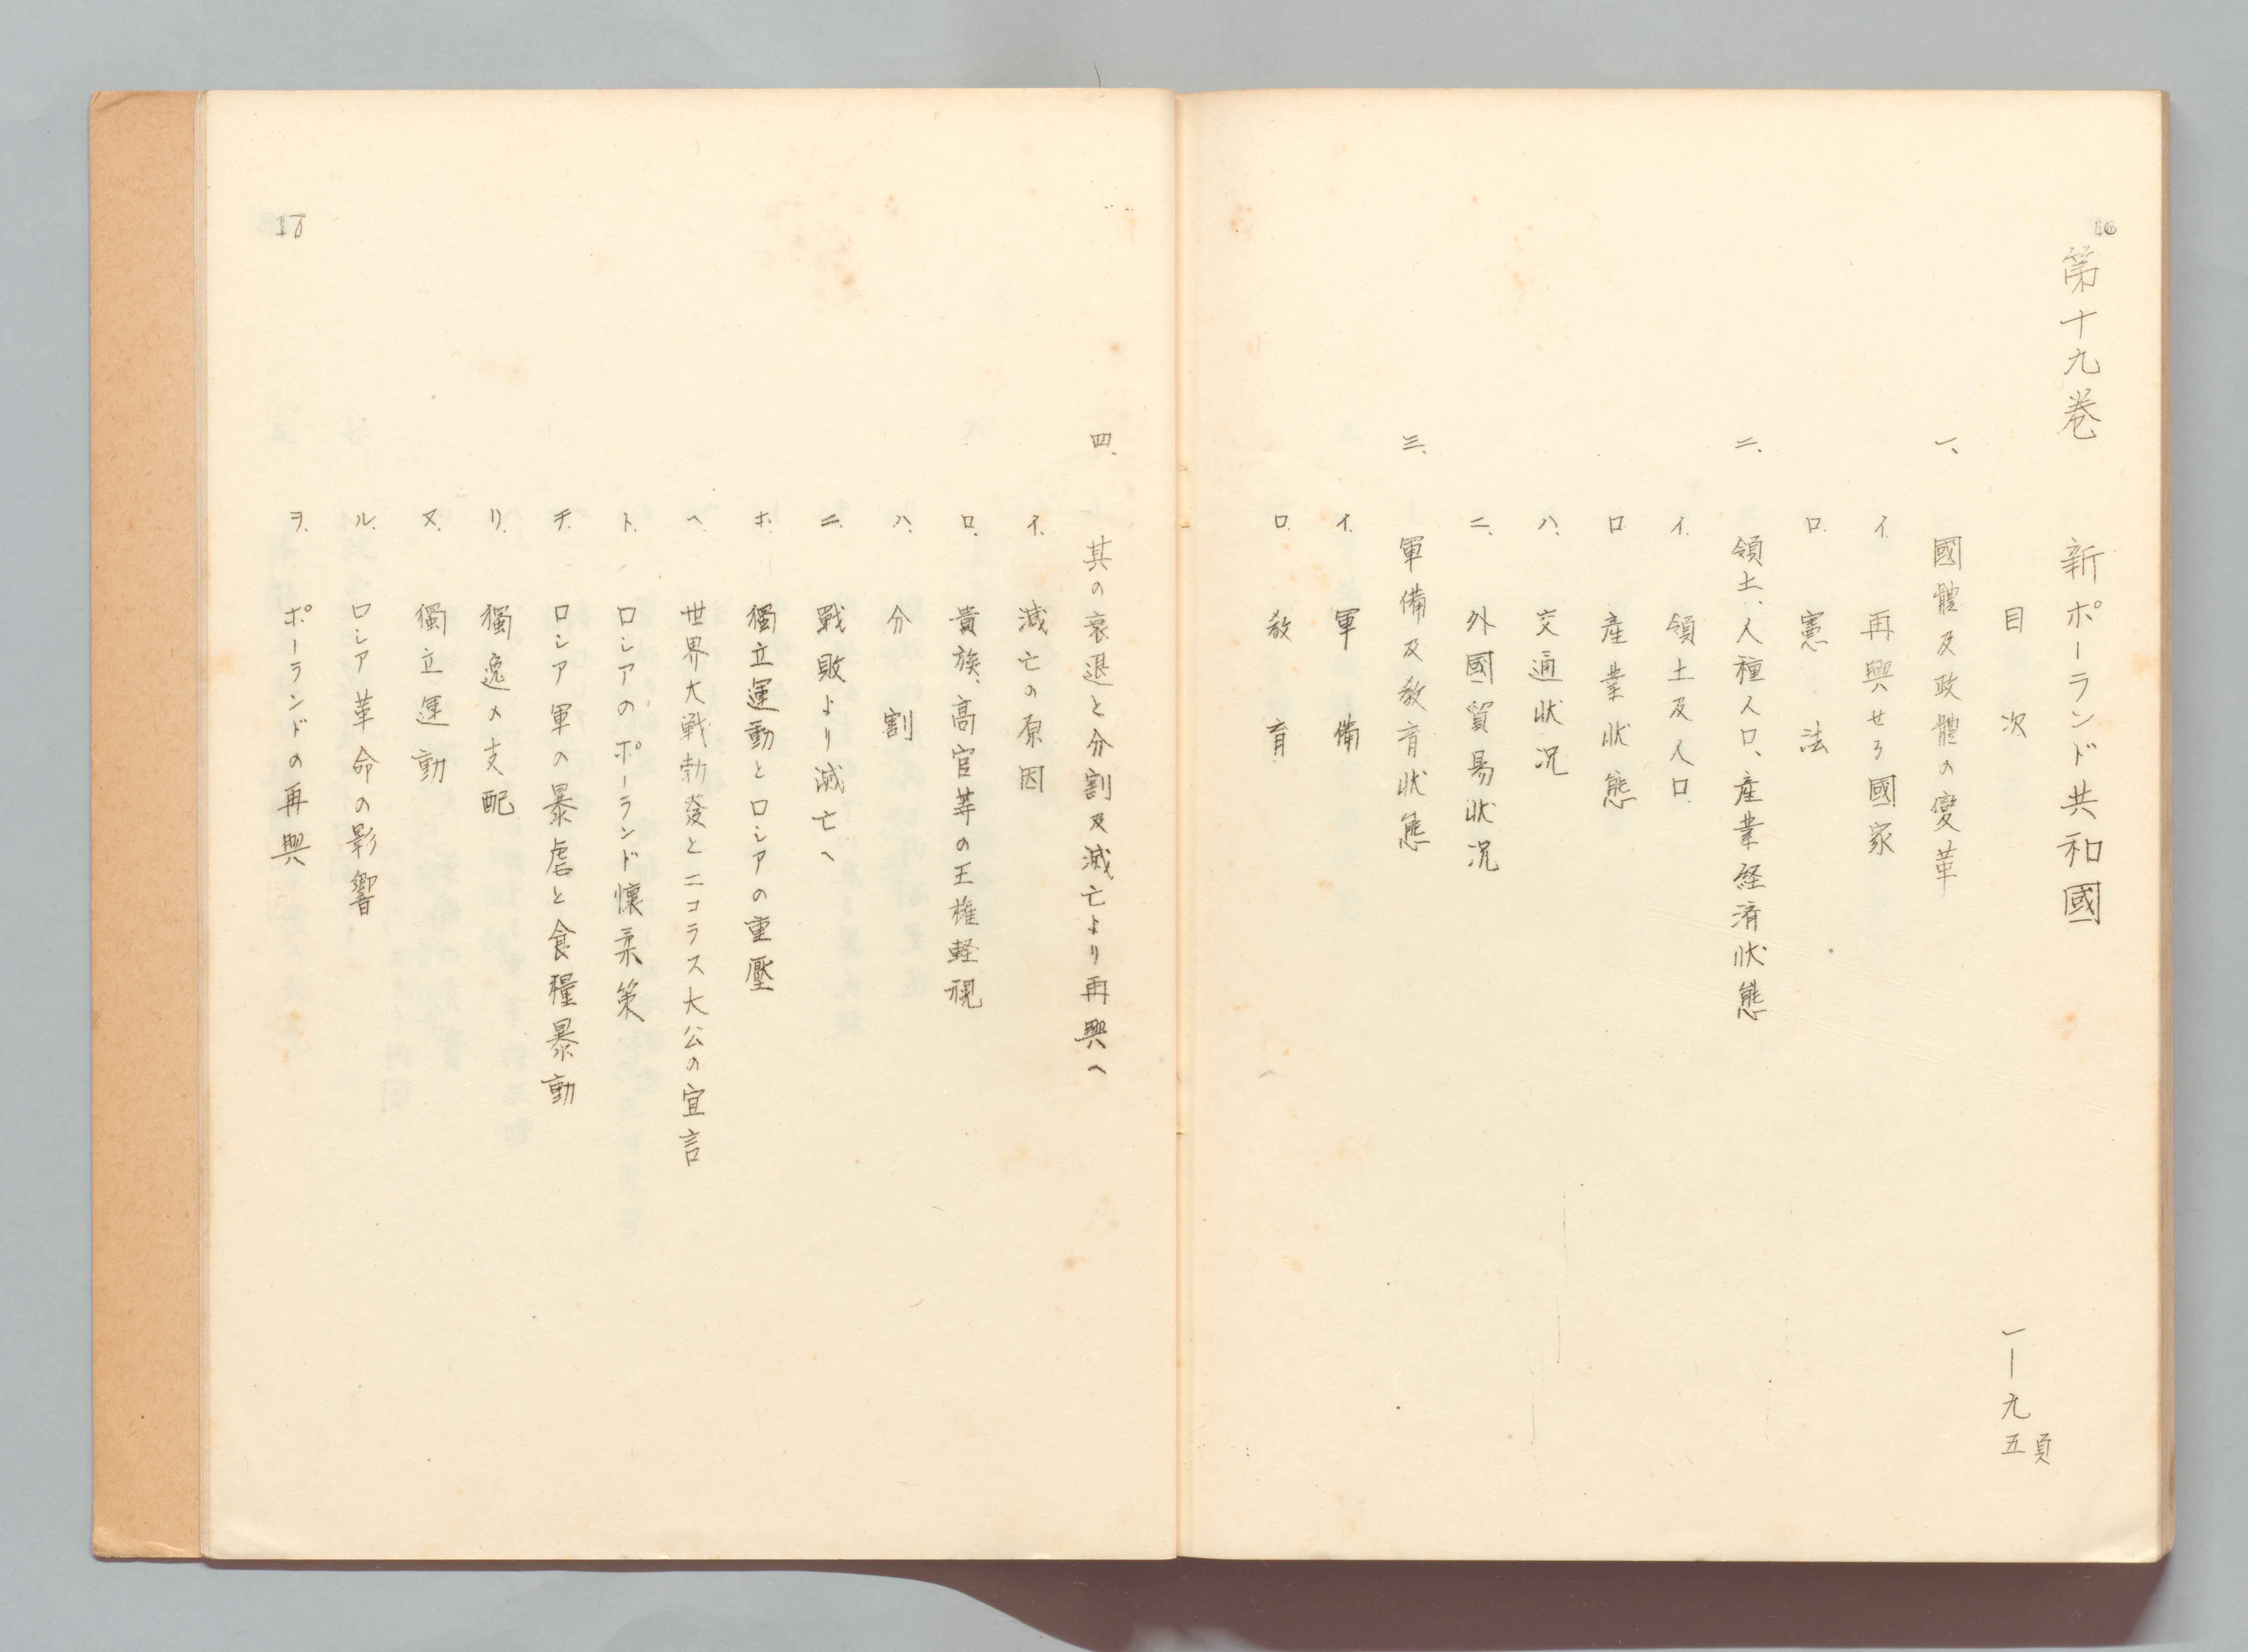 16
第十九巻　新ポーランド共和國
目次　一―九五頁
一、國體及政體の變革
イ.再興せる國家
ロ.憲法
二、領土、人種人口、産業経済状態
イ.領土及人口
ロ産業状態
ハ、交通状況
ニ、外國貿易状況
三、軍備及教育状態
イ.軍備
ロ.教育
四、其の衰退と分割及滅亡より再興へ
イ.滅亡の原因
ロ.貴族、高官等の王権軽視
ハ、分割
ニ.戰敗より滅亡へ
ホ.獨立運動とロシアの重壓
ヘ、世界大戦勃発とニコラス大公の宣言
ト.ロシアのポーランド懐柔策
チ.ロシア軍の暴虐と食糧暴動
リ.獨逸の支配
ヌ.獨立運動
ル.ロシア革命の影響
ヲ.ポーランドの再興